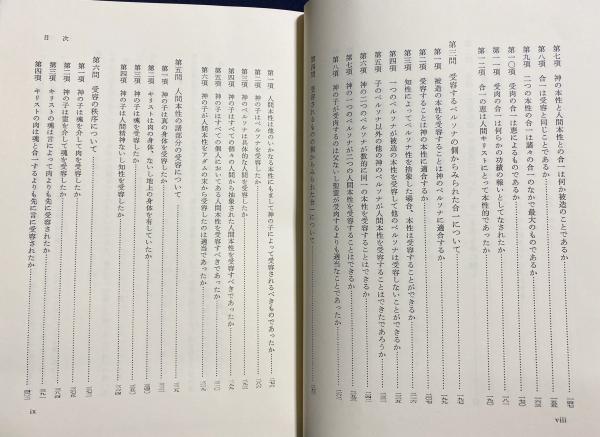 第七項 神の本性と人間本性との合一は何か被造のことであるか
第八項 合一は受容と同じことであるか
第九項 二つの本性の合一は諸々の合一のなかで最大のものであるか
第一〇項 受肉の合一は恩恵によるものであるか
第一一項 受肉の合一は何らかの功績の報いとしてなされたか
第一二項 合一の恵は人間キリストにとって本性的であったか
第三問 受容するペルソナの側からみられた合一について
第一項 被造の本性を受容することは神のペルソナに適合するか
第二項 受容することは神の本性に適合するか
第三項 知性によってペルソナ性を抽象した場合、本性は受容することができるか
第四項 一つのペルソナが被造の本性を受容して他のペルソナは受容しないことができるか
第五項 子のペルソナ以外の他の神のペルソナが人間本性を受容することはできたであろうか
第六項 神の二つのペルソナが数的に同一の本性を受容することはできるか
第七項 神の一つのペルソナが二つの人間本性を受容することはできるか
第八項 神の子が受肉するのは父ないし聖霊が受肉するよりも適当なことであったか
第四問 受容されるものの側からみられた合一について
viii
第一項 人間本性は他のいかなる本性にもまして神の子によって受容されるべきものであったか
第二項 神の子はペルソナを受容したか
第三項 神の子はペルソナは具体的な人間を受容したか
第四項 神の子はすべての個々の人間から抽象された人間本性を受容すべきであったか
第五項 神の子はすべての個人においてある人間本性を受容すべきであったか
第六項 神の子が人間本性をアダムの末から受容したのは適当であったか
第五問 人間本性の諸部分の受容について
第一項 神の子は真の身体を受容すべきであったか
第二項 キリストは肉の身体、ないし地上の身体を有していたか
第三項 神の子は魂を受容したか
第四項 神の子は人間精神ないし知性を受容したか
第六問 受容の秩序について
第一項 神の子は魂を介して肉を受容したか
第二項 神の子は霊を介して魂を受容したか
第三項 キリストの魂は言によって肉よりも先に受容されたか
第四項 キリストの肉は魂と合一するよりも先に言に受容されたか
目 次
ix